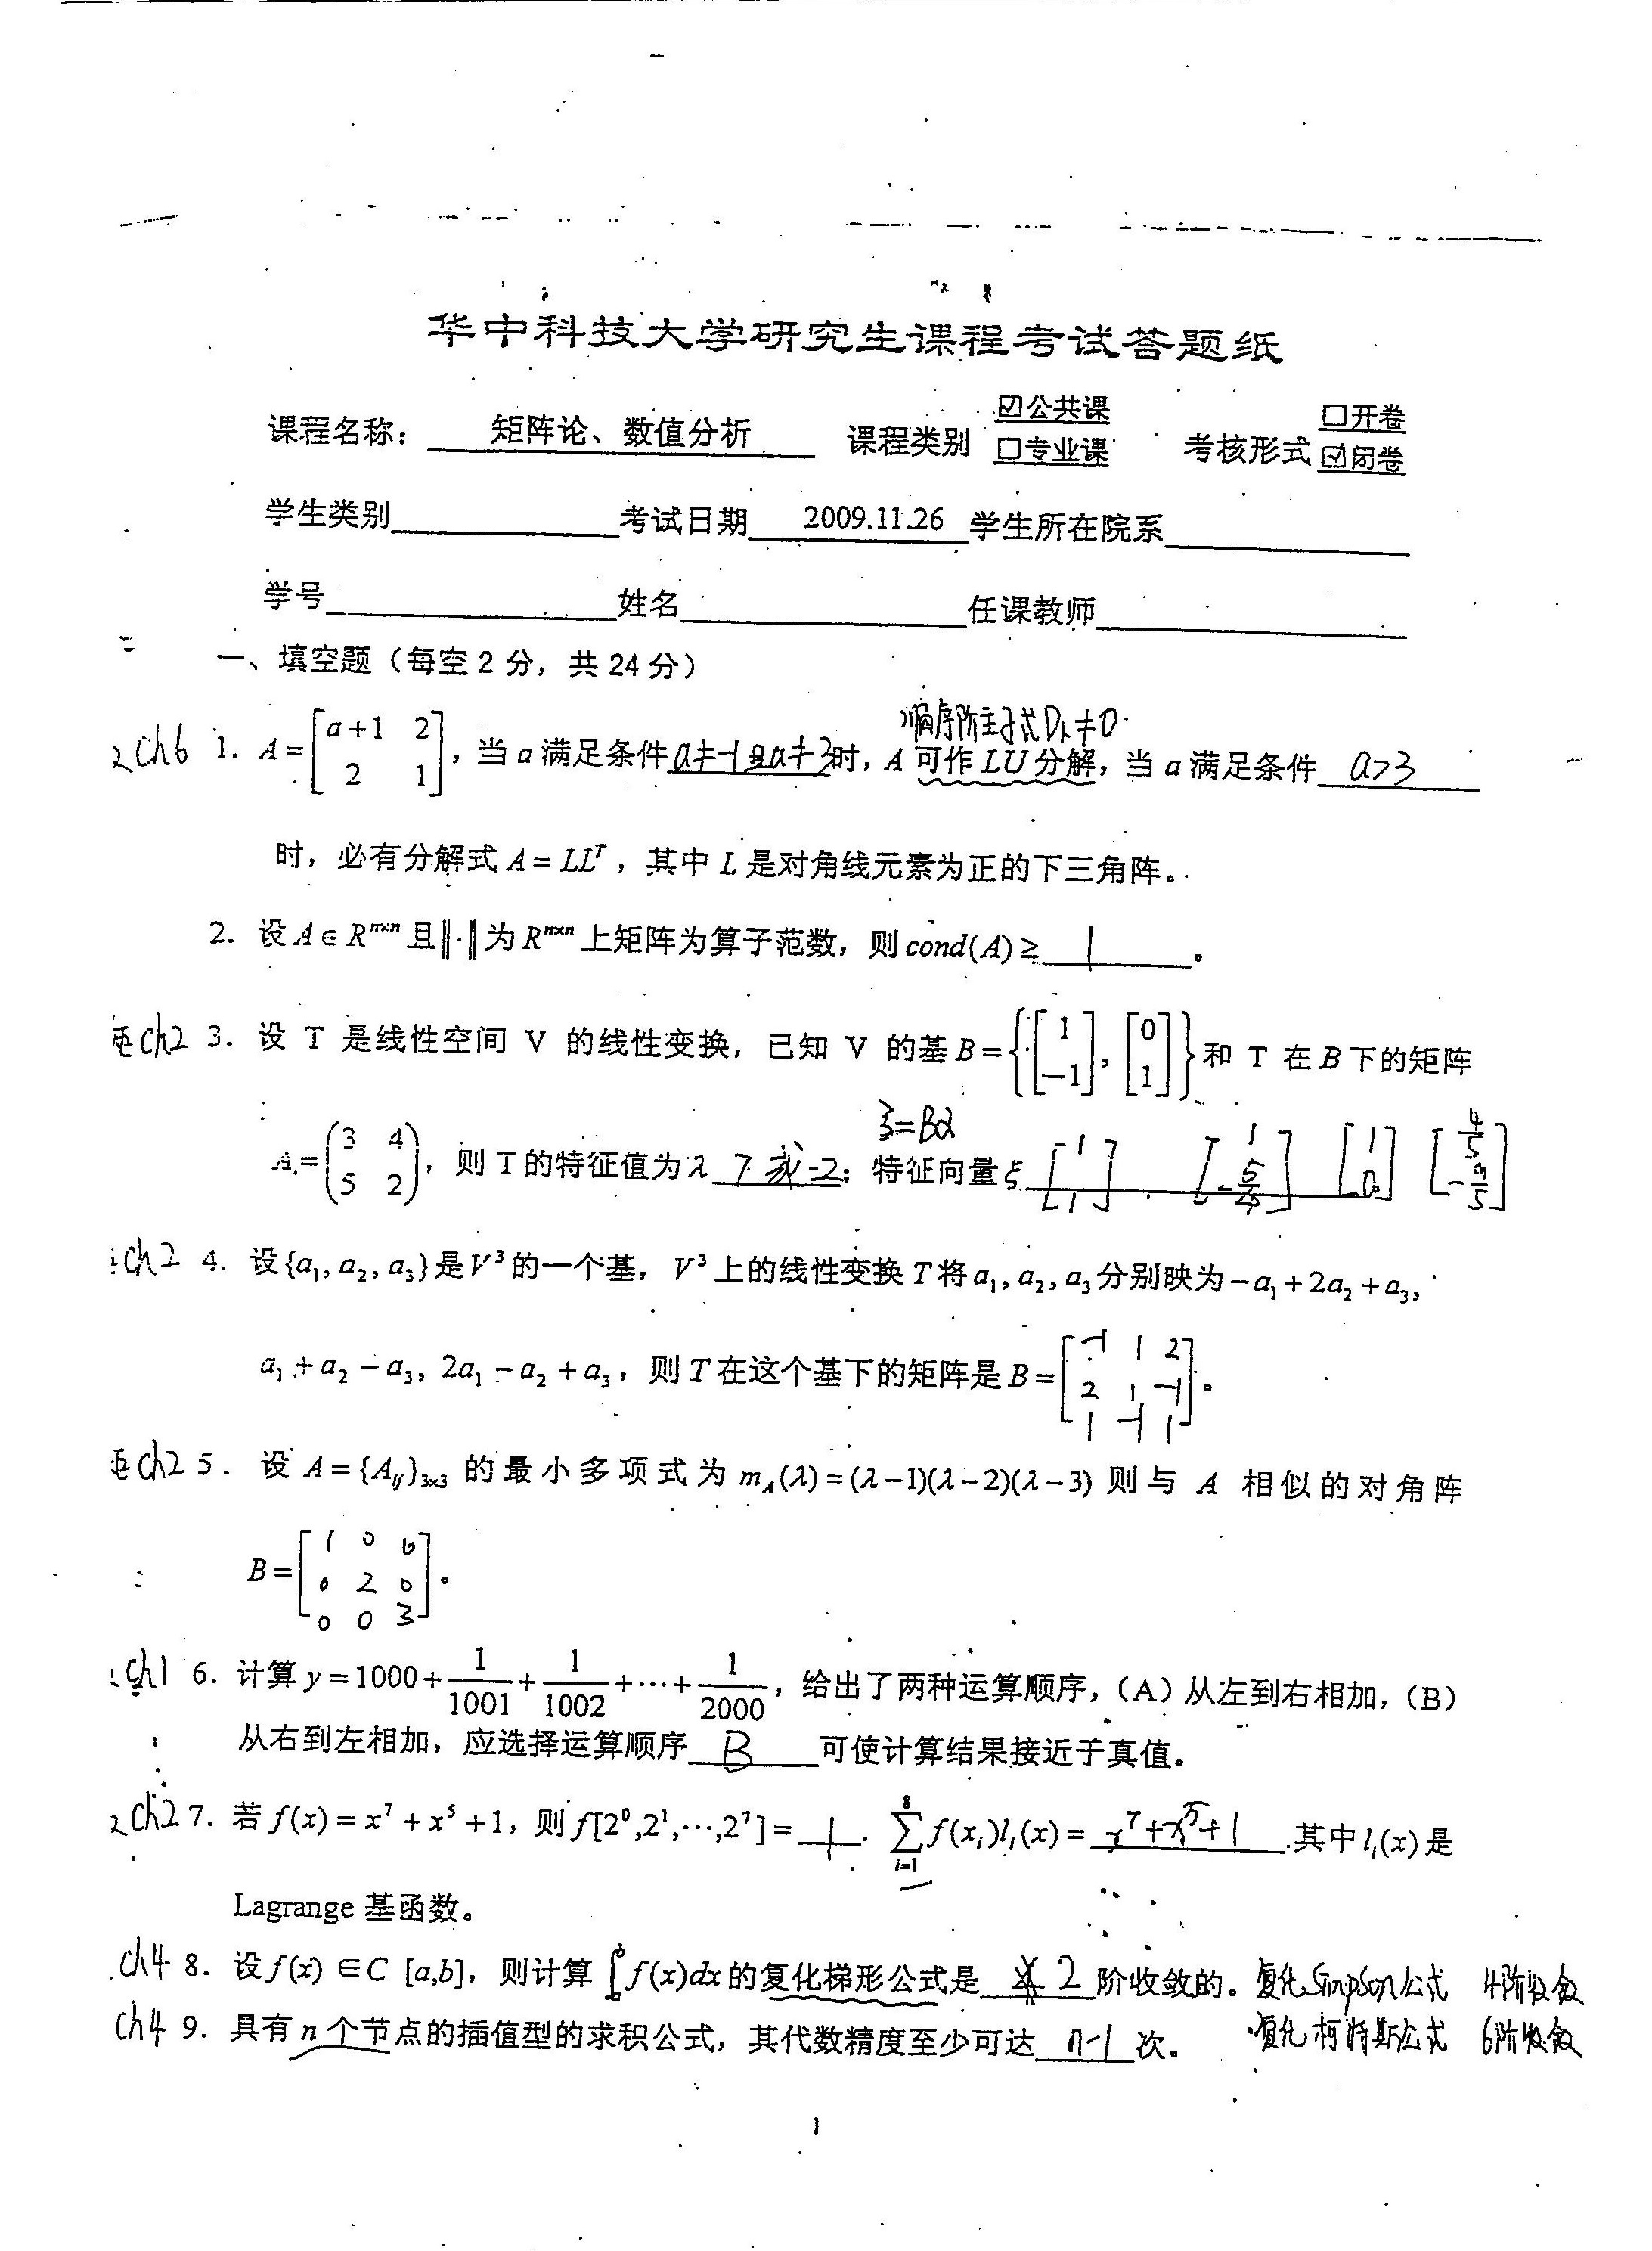 华中科技大学研究生课程考试答题纸
课程名称： 矩阵论、数值分析 课程类别 ☑公共课 □专业课 考核形式 □开卷 ☑闭卷
学生类别 考试日期 2009.11.26 学生所在院系
学号 姓名 任课教师
一、填空题（每空2分，共24分）
顺序阶主子式Dₖ≠0
ch6 1. A=[a+1 2; 2 1]，当a满足条件 a≠-1且a≠3 时，A可作LU分解，当a满足条件 a>3
时，必有分解式A=LLᵀ，其中L是对角线元素为正的下三角阵。
2. 设A∈Rⁿˣⁿ且‖·‖为Rⁿˣⁿ上矩阵为算子范数，则cond(A)≥ 1 。
ch2 3. 设 T 是线性空间 V 的线性变换，已知 V 的基B={[1; -1], [0; 1]}和 T 在B下的矩阵
ξ=Bα
A=(3 4; 5 2)，则T的特征值为λ 7或-2；特征向量ξ [1; 1] [1; -5/4] [1; 0] [4/5; -9/5]
ch2 4. 设{a₁, a₂, a₃}是V³的一个基，V³上的线性变换T将a₁, a₂, a₃分别映为-a₁+2a₂+a₃,
a₁+a₂-a₃, 2a₁-a₂+a₃，则T在这个基下的矩阵是B=[-1 1 2; 2 1 -1; 1 -1 1]。
ch2 5. 设 A={Aᵢⱼ}₃ₓ₃ 的最小多项式为 m_A(λ)=(λ-1)(λ-2)(λ-3) 则与 A 相似的对角阵
B=[1 0 0; 0 2 0; 0 0 3]。
ch1 6. 计算y=1000+1/1001+1/1002+···+1/2000，给出了两种运算顺序，（A）从左到右相加，（B）
从右到左相加，应选择运算顺序 B 可使计算结果接近于真值。
ch2 7. 若f(x)=x⁷+x⁵+1，则f[2⁰,2¹,···,2⁷]= 1 . ∑_{i=1}^{8} f(xᵢ)lᵢ(x)= x⁷+x⁵+1 .其中lᵢ(x)是
Lagrange 基函数。
ch4 8. 设f(x)∈C [a,b]，则计算∫ₐᵇf(x)dx的复化梯形公式是 2 阶收敛的。复化Simpson公式 4阶收敛
ch4 9. 具有n个节点的插值型的求积公式，其代数精度至少可达 n-1 次。 复化柯特斯公式 6阶收敛
1